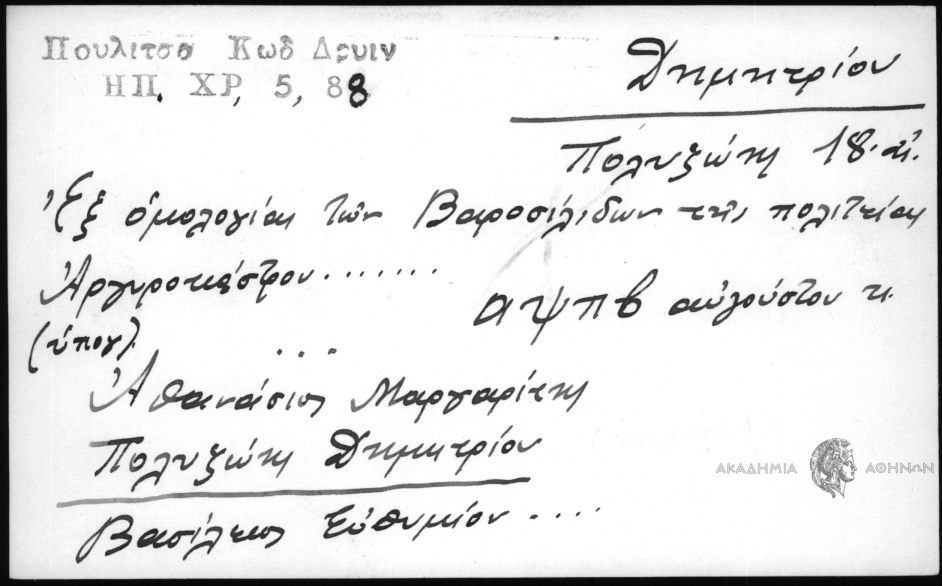 Πουλιτσα Κωδ Δρυιν
ΗΠ. ΧΡ, 5, 88
Δημητρίου
Πολυζώης 18. αἰ.
Ἐξ ὁμολογίας τῶν Βαροσιλιδων τῆς πολιτείας
Ἀργυροκάστρου.......
αψπβ αὐγούστου κ.
(ὑπογ).
...
Ἀθανάσιος Μαργαρίτης
Πολυζώης Δημητρίου
Βασίλειος Εὐθυμίου ....
ΑΚΑΔΗΜΙΑ ΑΘΗΝΩΝ